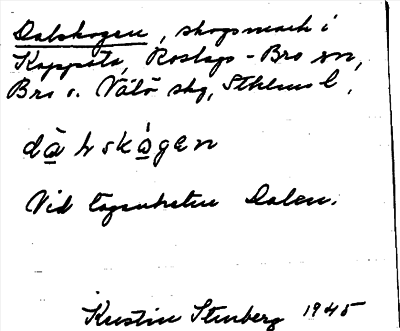 Dalskogen, skogsmark i
Kappsta, Roslags-Bro sn,
Bro o. Vätö skg, Sthlms l.
dàlskógen
Vid lägenheten Dalen.
Kerstin Stenberg 1945